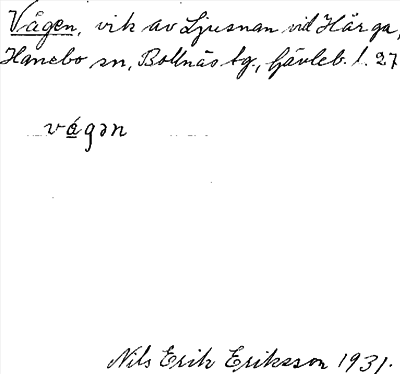 Vågen, vik av Ljusnan vid Hårga,
Hanebo sn, Bollnäs tg., Gävleb. l. 27
vágən
Nils Erik Eriksson 1931.